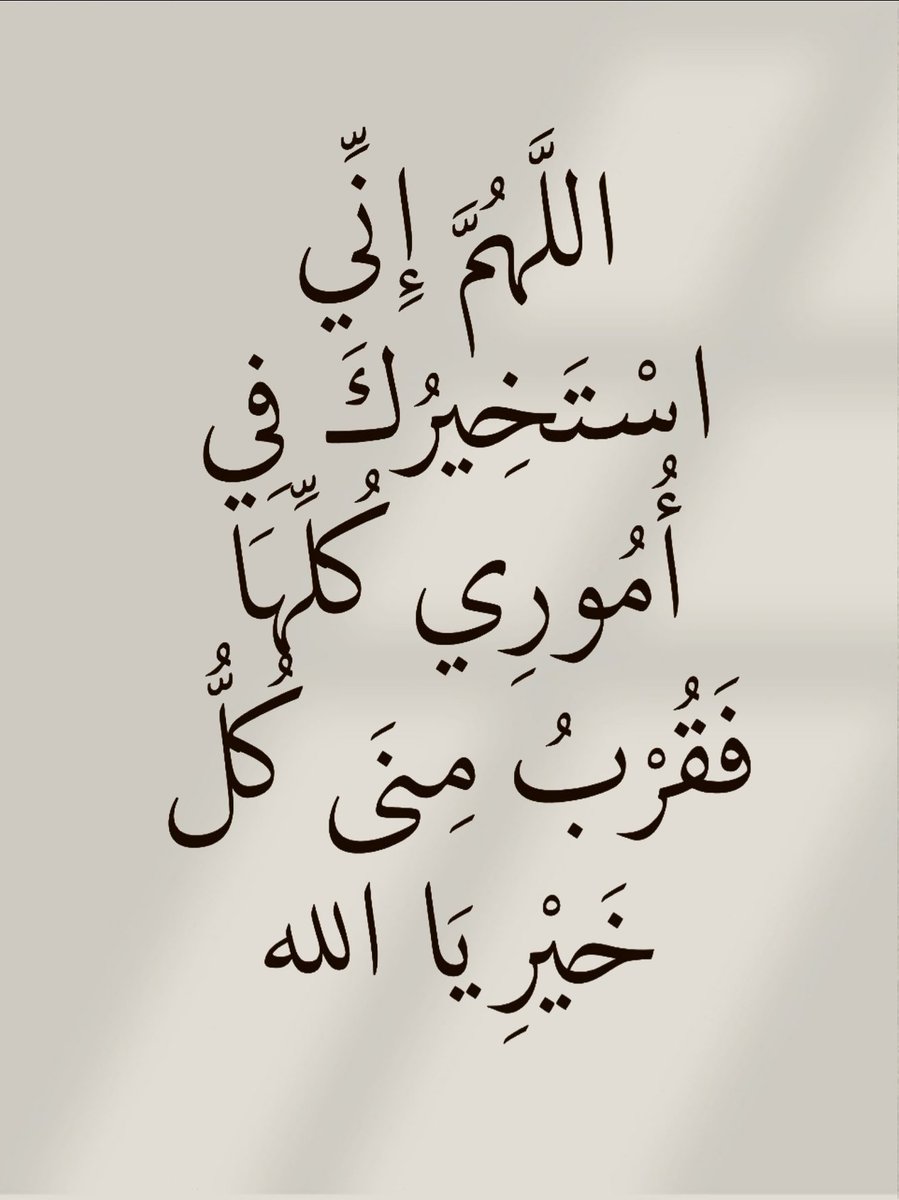 اللَّهُمَّ إِنِّي
اسْتَخِيرُكَ فِي
أُمُورِي كُلِّهَا
فَقُرْبُ مِنَى كُلُّ
خَيْرِ يَا الله